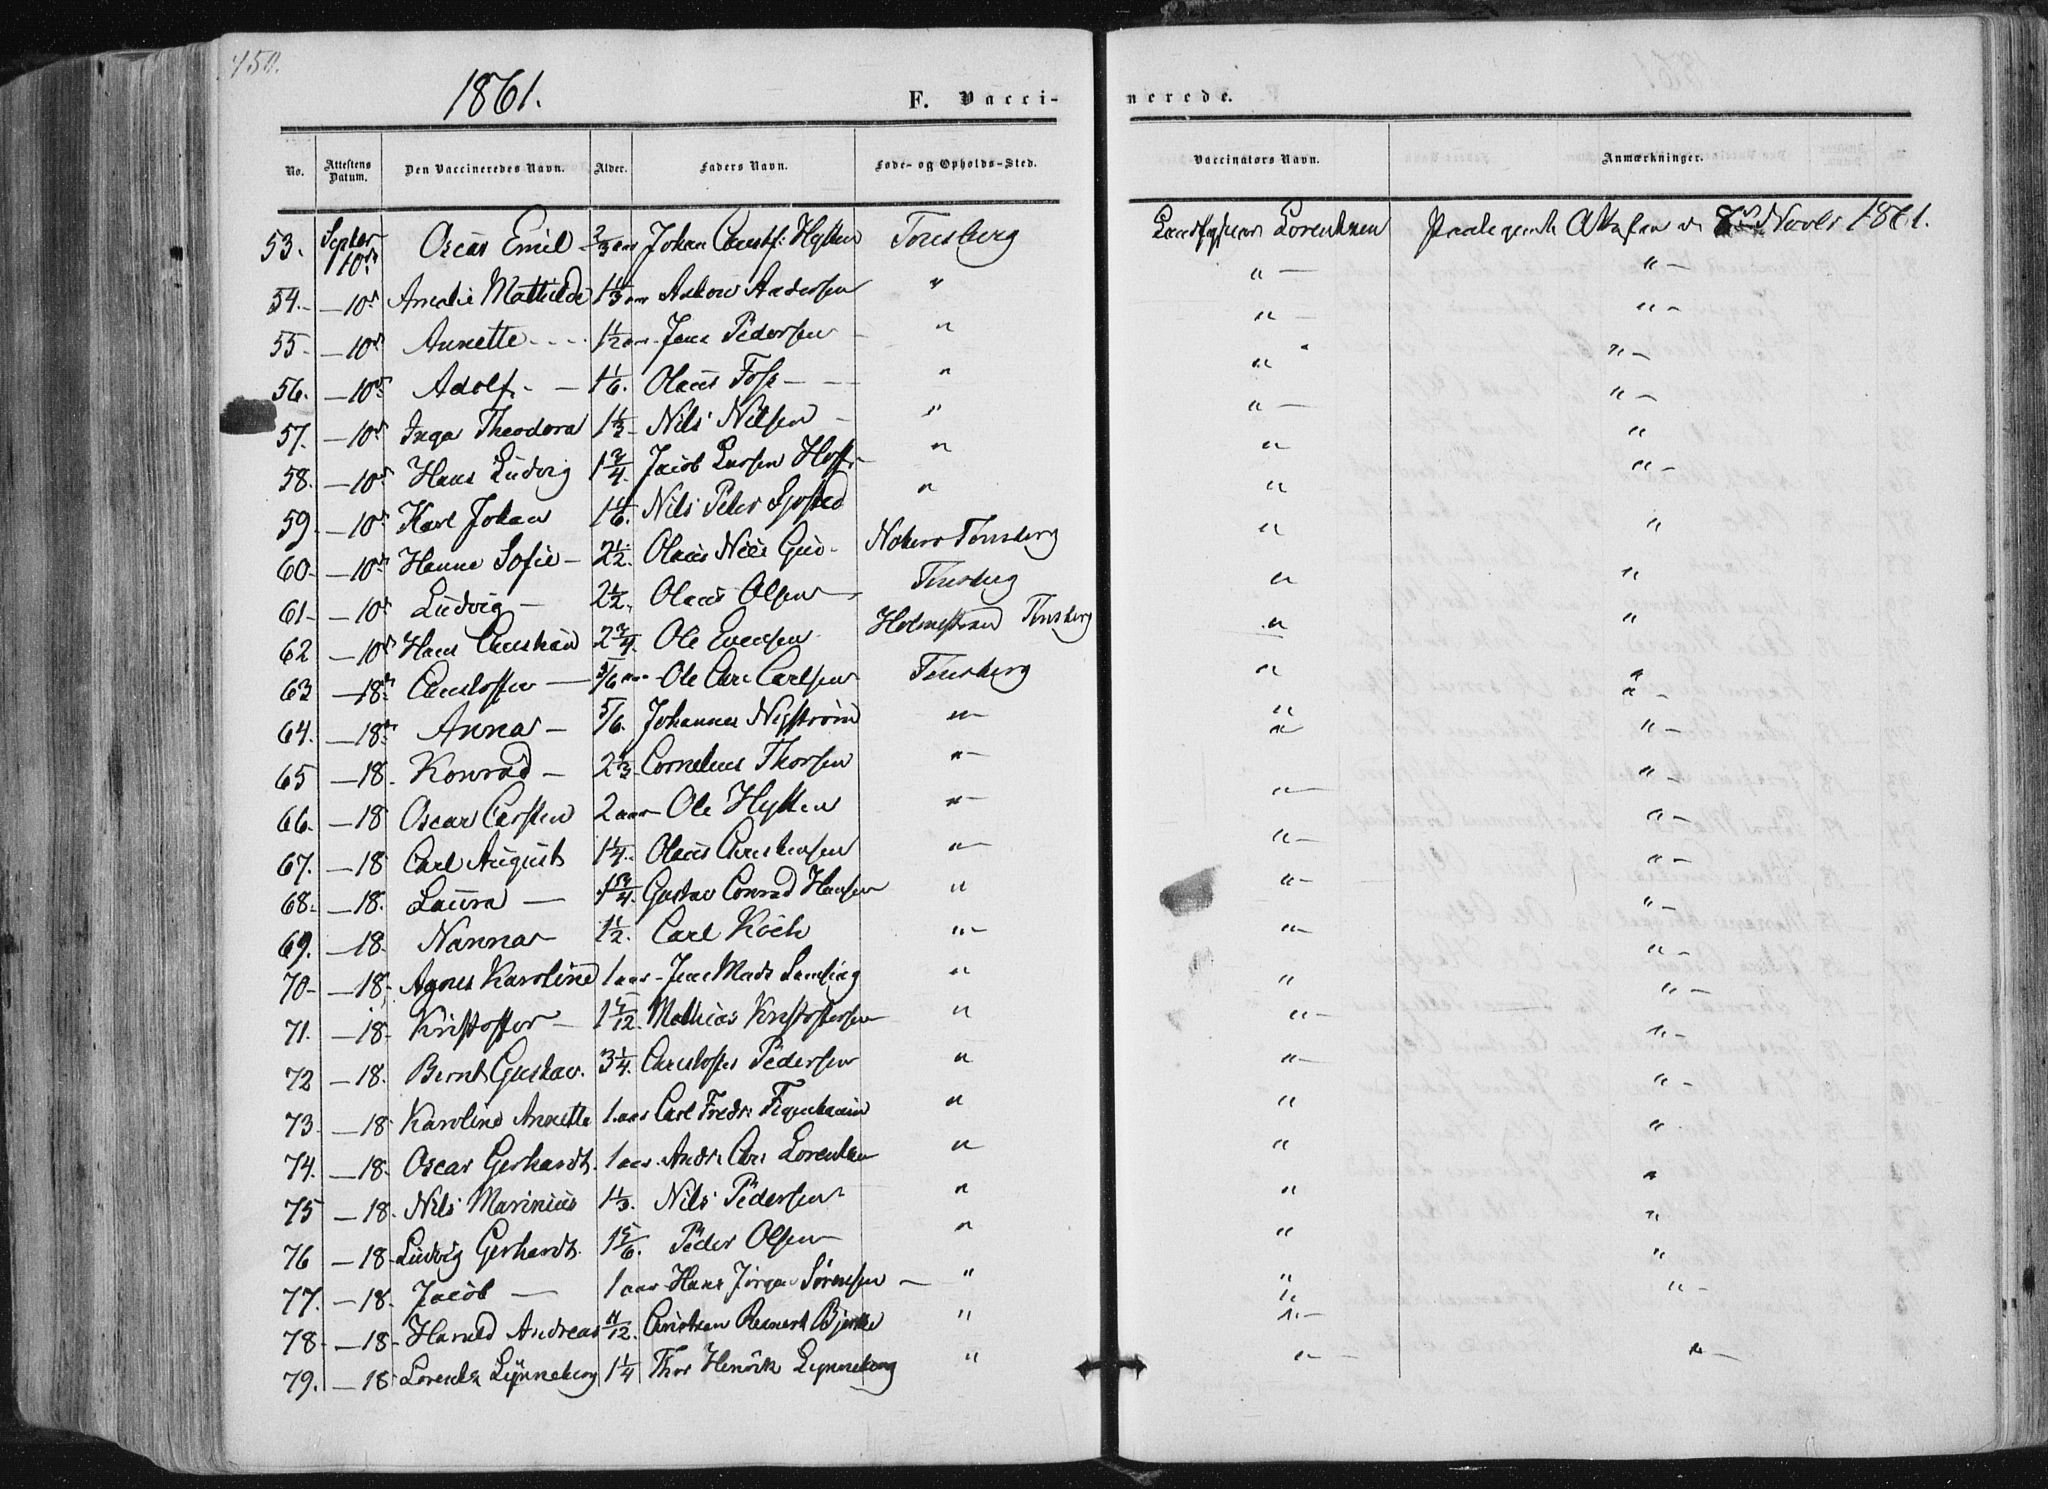 450.
1861.
F. Vacci-nerede.
No. Attestens Datum. Den Vaccineredes Navn. Alder. Faders Navn. Føde- og Opholds-Sted. Vaccinators Navn. Anmærkninger.
53. Septbr 10de Oscar Emil 2/3 aar Johan Christf: Hytten Tønsberg Lorentzen Novbr 1861.
54. — 10de Amalie Mathilde 1 1/3 aar Andersen " " — " —
55 — 10de Annette 1 1/2 aar Jens Pedersen " " — " —
56. — 10de Adolf. — 1 1/6. Olaus Foss " " " —
57. — 10de Inga Theodora 1 1/2 — Nils Nilsen — " " — " —
58. — 10de Hans Ludvig 1 3/4. Jacob Larsen Hoff. " " "
59. — 10de Karl Johan 1 1/6. Nils Peter Sjøsted " " " —
60 — 10de Hanne Sofie — 2 1/2. Olaus Nøterø Tønsberg " "
61 — 10de Ludvig — 2 1/2. Olaus Olsen Tønsberg " "
62 — 10de Hans Christian 2 3/4. Ole Evensen Holmestrand Tønsberg " "
63 — 18de Christoffer — 5/6 aar Ole Chr. Carlsen Tønsberg " "
64. — 18de Anna — 5/6. Johannes Nystrøm " — " " —
65 — 18. Konrad — 2 1/3 Cornelius Thorsen " — " " —
66. — 18 Oscar Carsten 2 aar — Ole Hytten " — " — " —
67. — 18 Carl August 1 1/4. Olaus Christensen " — " — " —
68. — 18. Laura — 1 3/4. Gustav Conrad Hansen " " — " —
69. — 18. Nanna 1 1/2. Carl Koch " — " — " —
70 — 18. Agnes Karoline 1 aar — Jens Mads " " " —
71. — 18. Kristoffer — 1 5/12. Mathias Kristoffersen " " — " —
72 — 18. Bernt Gustav. 3 1/4. Christoffer Pedersen " " — " —
73 — 18 Karoline Annette 1 aar Carl Fredr. Figenbaum " " " —
74. — 18. Oscar Gerhardt. 1 aar Andr. Chr. Lorentzen " " "
75 — 18. Nils Marinius 1 1/3. Nils Pedersen " " "
76 — 18 Ludvig Gerhardt. 1 5/6. Peder Olsen " " "
77. — 18. Jacob — 1 aar Hans Jørgen Sørensen — " " "
78 — 18 — Harald Andreas 11/12. Christian Reinert Bjerke " " — " —
79. — 18 Lorentz Lynneberg 1 1/4 Thor Henrik Lynneberg " " — " —